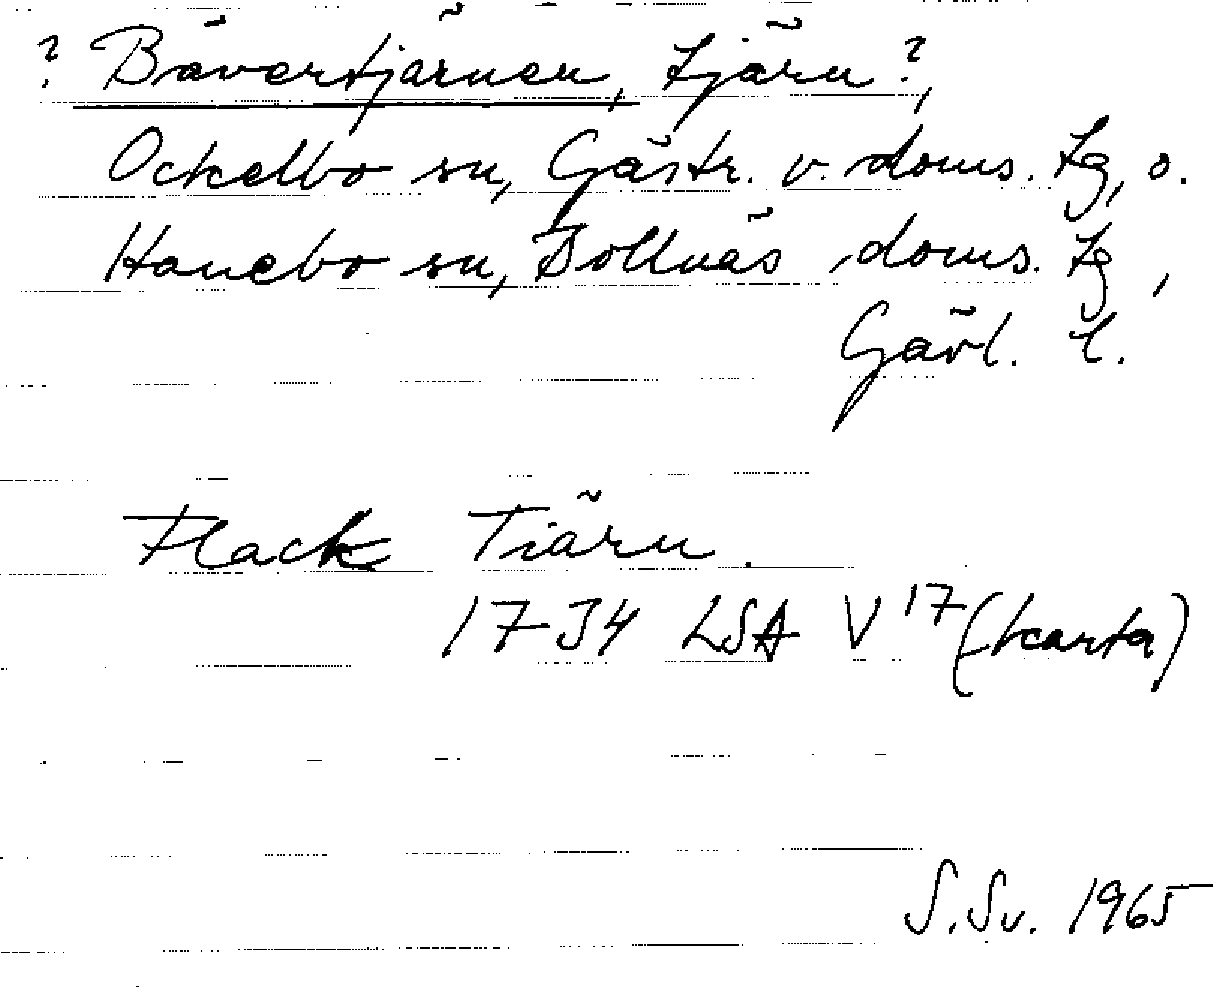 ? Bävertjärnen, tjärn?,
Ockelbo sn, Gästr. v. doms. tg, o.
Hanebo sn, Bollnäs doms. tg,
Gävl. l.
Flack Tiärn.
1734 LSA V 17 (karta)
S. Sv. 1965